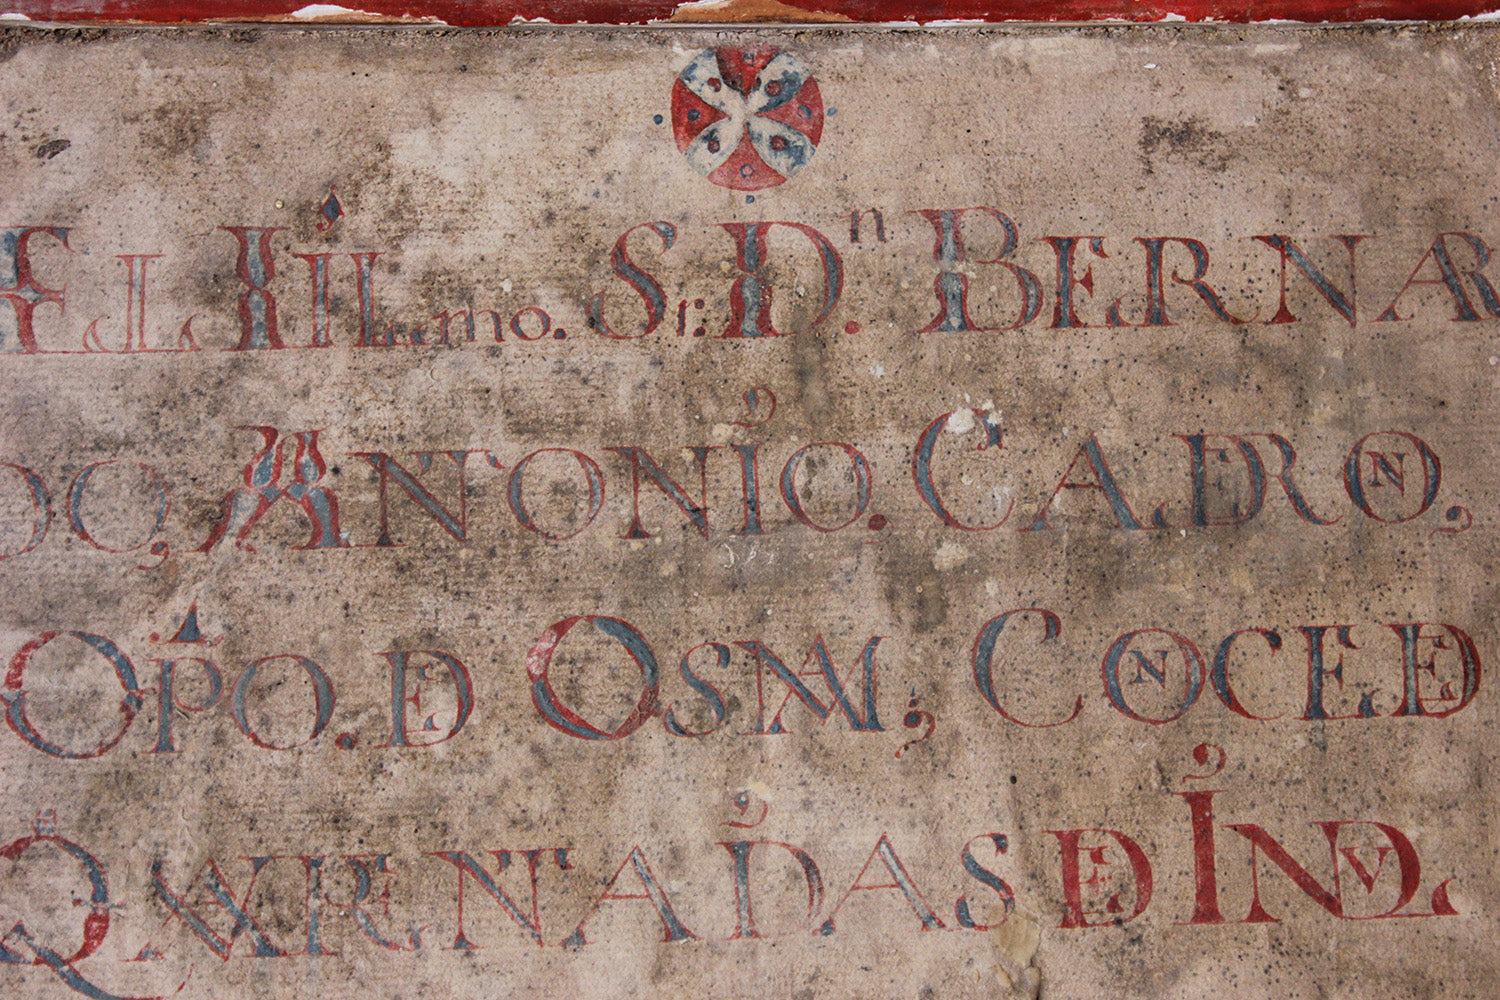 EL ILmo. Sr. Dn. BERNAR
DO, ANTONIO. CALDRON,
OPO. DE OSMA; CONCEDE
QUARENTA DIAS DE INDUL